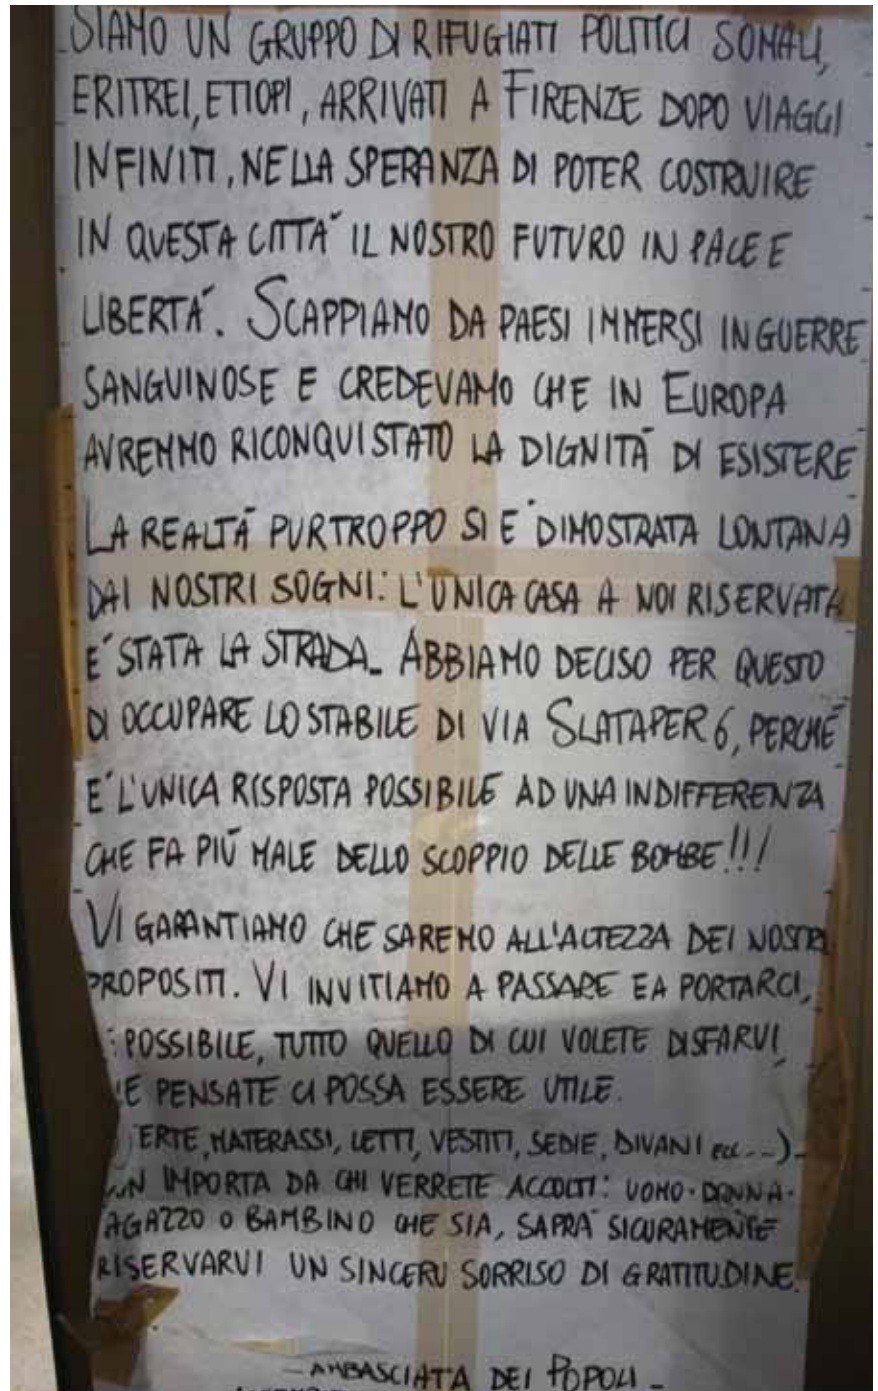 SIAMO UN GRUPPO DI RIFUGIATI POLITICI SOMALI,
ERITREI, ETIOPI, ARRIVATI A FIRENZE DOPO VIAGGI
INFINITI, NELLA SPERANZA DI POTER COSTRUIRE
IN QUESTA CITTA' IL NOSTRO FUTURO IN PACE E
LIBERTA'. SCAPPIAMO DA PAESI IMMERSI IN GUERRE
SANGUINOSE E CREDEVAMO CHE IN EUROPA
AVREMMO RICONQUISTATO LA DIGNITA' DI ESISTERE
LA REALTA' PURTROPPO SI E' DIMOSTRATA LONTANA
DAI NOSTRI SOGNI: L'UNICA CASA A NOI RISERVATA
E' STATA LA STRADA_ ABBIAMO DECISO PER QUESTO
DI OCCUPARE LO STABILE DI VIA SLATAPER 6, PERCHE'
E' L'UNICA RISPOSTA POSSIBILE AD UNA INDIFFERENZA
CHE FA PIU' MALE DELLO SCOPPIO DELLE BOMBE!!!
VI GARANTIAMO CHE SAREMO ALL'ALTEZZA DEI NOSTRI
PROPOSITI. VI INVITIAMO A PASSARE E A PORTARCI,
POSSIBILE, TUTTO QUELLO DI CUI VOLETE DISFARVI
E PENSATE CI POSSA ESSERE UTILE.
ERTE, MATERASSI, LETTI, VESTITI, SEDIE, DIVANI ecc...)_
ON IMPORTA DA CHI VERRETE ACCOLTI: UOMO-DONNA-
AGAZZO O BAMBINO CHE SIA, SAPRA' SICURAMENTE
RISERVARVI UN SINCERO SORRISO DI GRATITUDINE.
- AMBASCIATA DEI POPOLI -